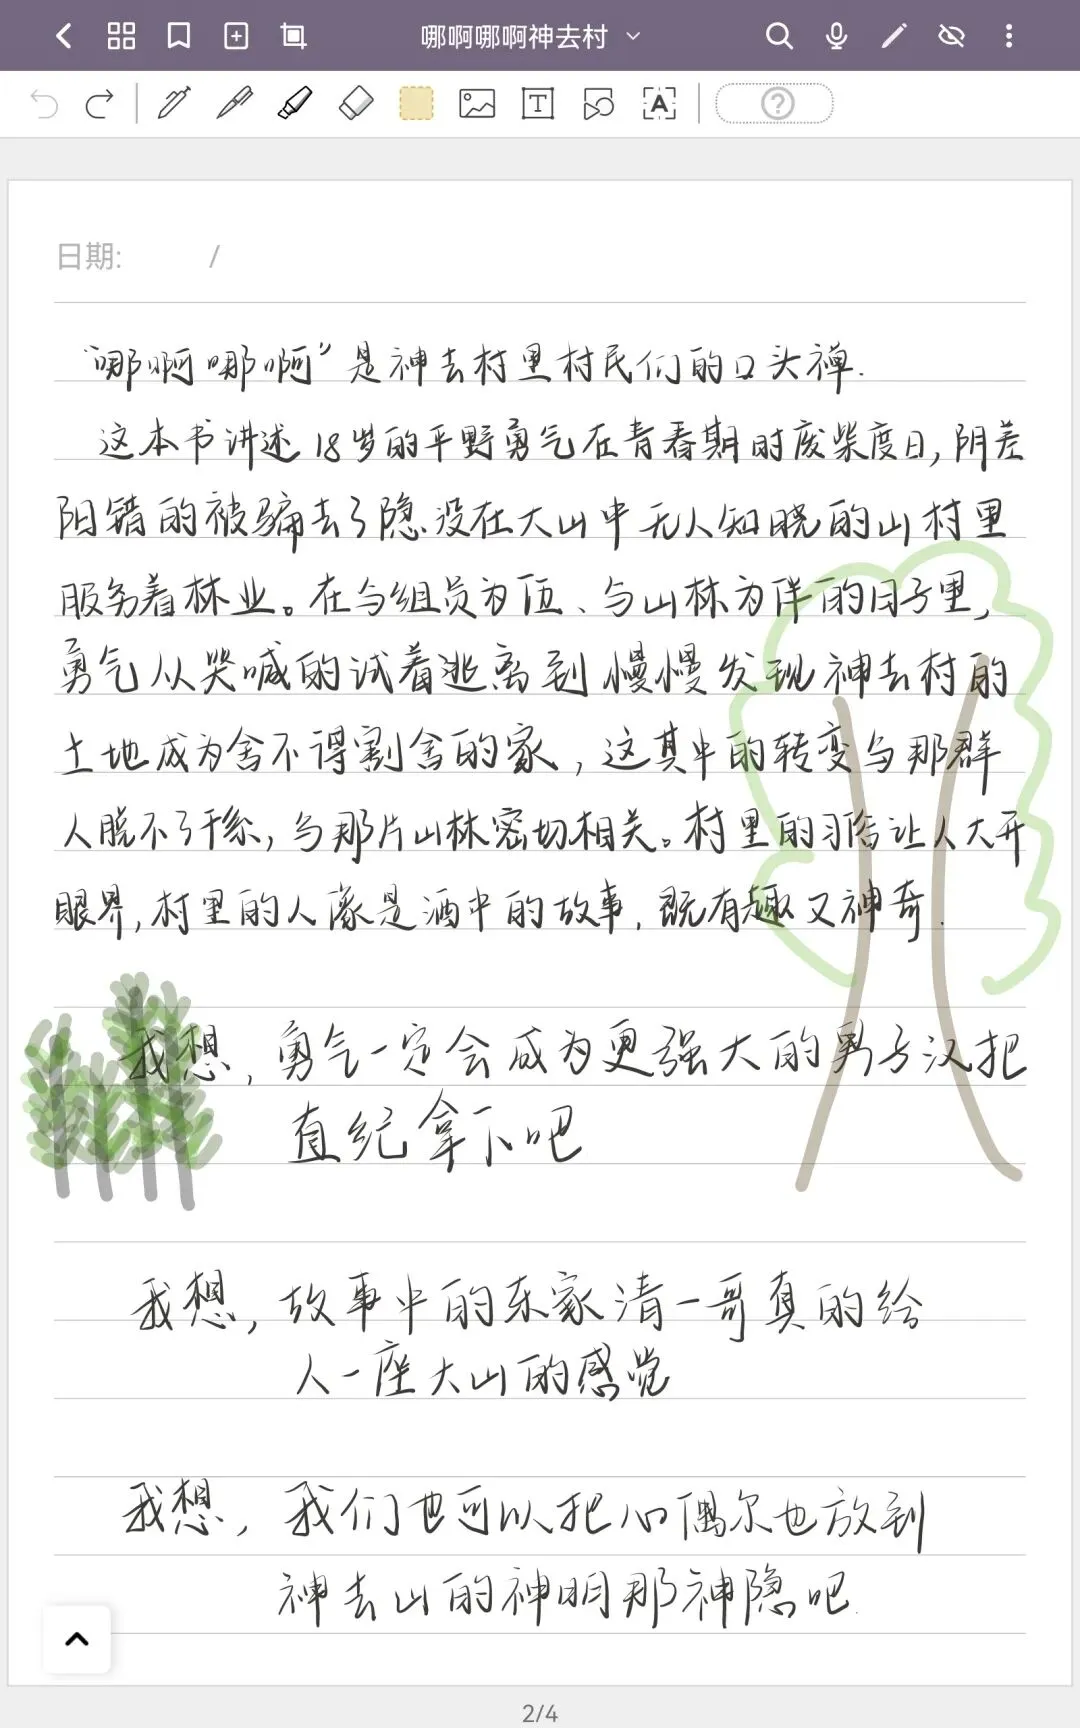 哪啊哪啊神去村
日期: /
“哪啊哪啊”是神去村里村民们的口头禅.
这本书讲述18岁的平野勇气在青春期时废柴度日,阴差
阳错的被骗去了隐没在大山中无人知晓的山村里
服务着林业。在与组员为伍、与山林为伴的日子里,
勇气从哭喊的试着逃离到慢慢发现神去村的
土地成为舍不得割舍的家,这其中的转变与那群
人脱不了干系,与那片山林密切相关。村里的习俗让人大开
眼界,村里的人像是酒中的故事,既有趣又神奇.
我想,勇气一定会成为更强大的男子汉把
直纪拿下吧
我想,故事中的东家清一哥真的给
人一座大山的感觉
我想,我们也可以把心偶尔也放到
神去山的神明那神隐吧.
2/4